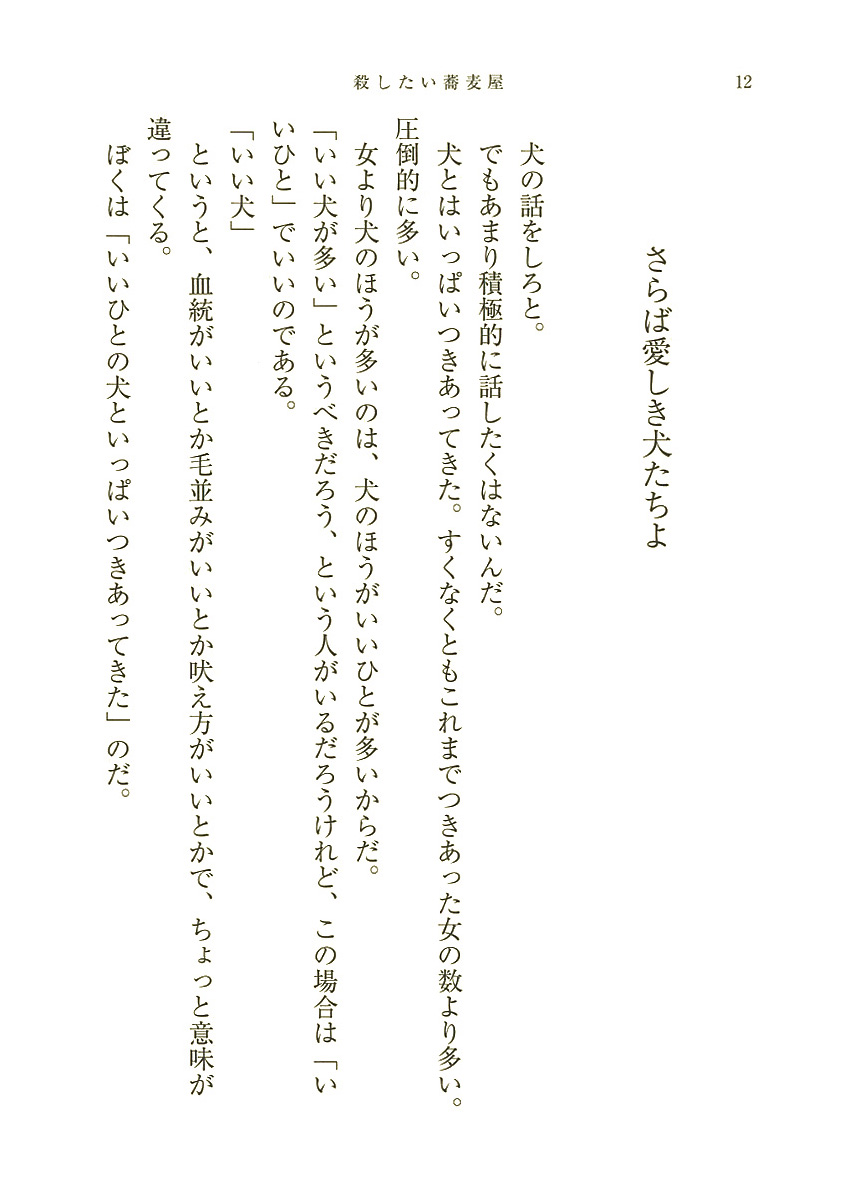 殺したい蕎麦屋
12
さらば愛しき犬たちよ
犬の話をしろと。
でもあまり積極的に話したくはないんだ。
犬とはいっぱいつきあってきた。すくなくともこれまでつきあった女の数より多い。
圧倒的に多い。
女より犬のほうが多いのは、犬のほうがいいひとが多いからだ。
「いい犬が多い」というべきだろう、という人がいるだろうけれど、この場合は「い
いひと」でいいのである。
「いい犬」
というと、血統がいいとか毛並みがいいとか吠え方がいいとかで、ちょっと意味が
違ってくる。
ぼくは「いいひとの犬といっぱいつきあってきた」のだ。